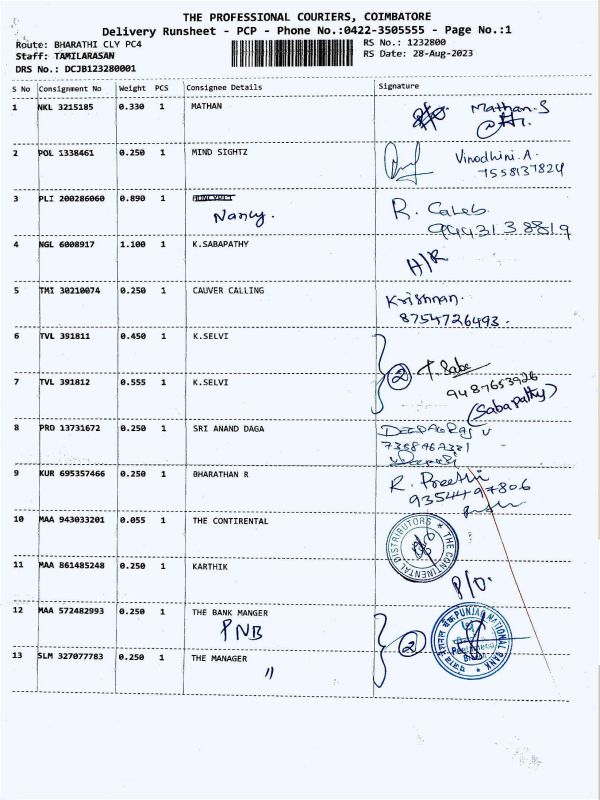 THE PROFESSIONAL COURIERS, COIMBATORE
Delivery Runsheet - PCP - Phone No.:0422-3505555 - Page No.:1
Route: BHARATHI CLY PC4 RS No.: 1232800
Staff: TAMILARASAN RS Date: 28-Aug-2023
DRS No.: DCJB123280001
S No Consignment No Weight PCS Consignee Details Signature
1 NKL 3215185 0.330 1 MATHAN Mathan.S
2 POL 1338461 0.250 1 MIND SIGHTZ Vinodhini.A.
7558137824
3 PLI 200286060 0.890 1 R. Caleb
Nancy. 9443138819
4 NGL 6008917 1.100 1 K.SABAPATHY H/R
5 TMI 30210074 0.250 1 CAUVER CALLING Krishnan.
8754726493.
6 TVL 391811 0.450 1 K.SELVI
2 T. Saba
7 TVL 391812 0.555 1 K.SELVI 9487653926
(Sabapathy)
8 PRD 13731672 0.250 1 SRI ANAND DAGA
9 KUR 695357466 0.250 1 BHARATHAN R R. Preethi
9354497806
10 MAA 943033201 0.055 1 THE CONTIRENTAL THE CONTINENTAL DISTRIBUTORS
11 MAA 861485248 0.250 1 KARTHIK P/O.
12 MAA 572482993 0.250 1 THE BANK MANGER PUNJAB NATIONAL BANK
PNB 2
13 SLM 327077783 0.250 1 THE MANAGER
"